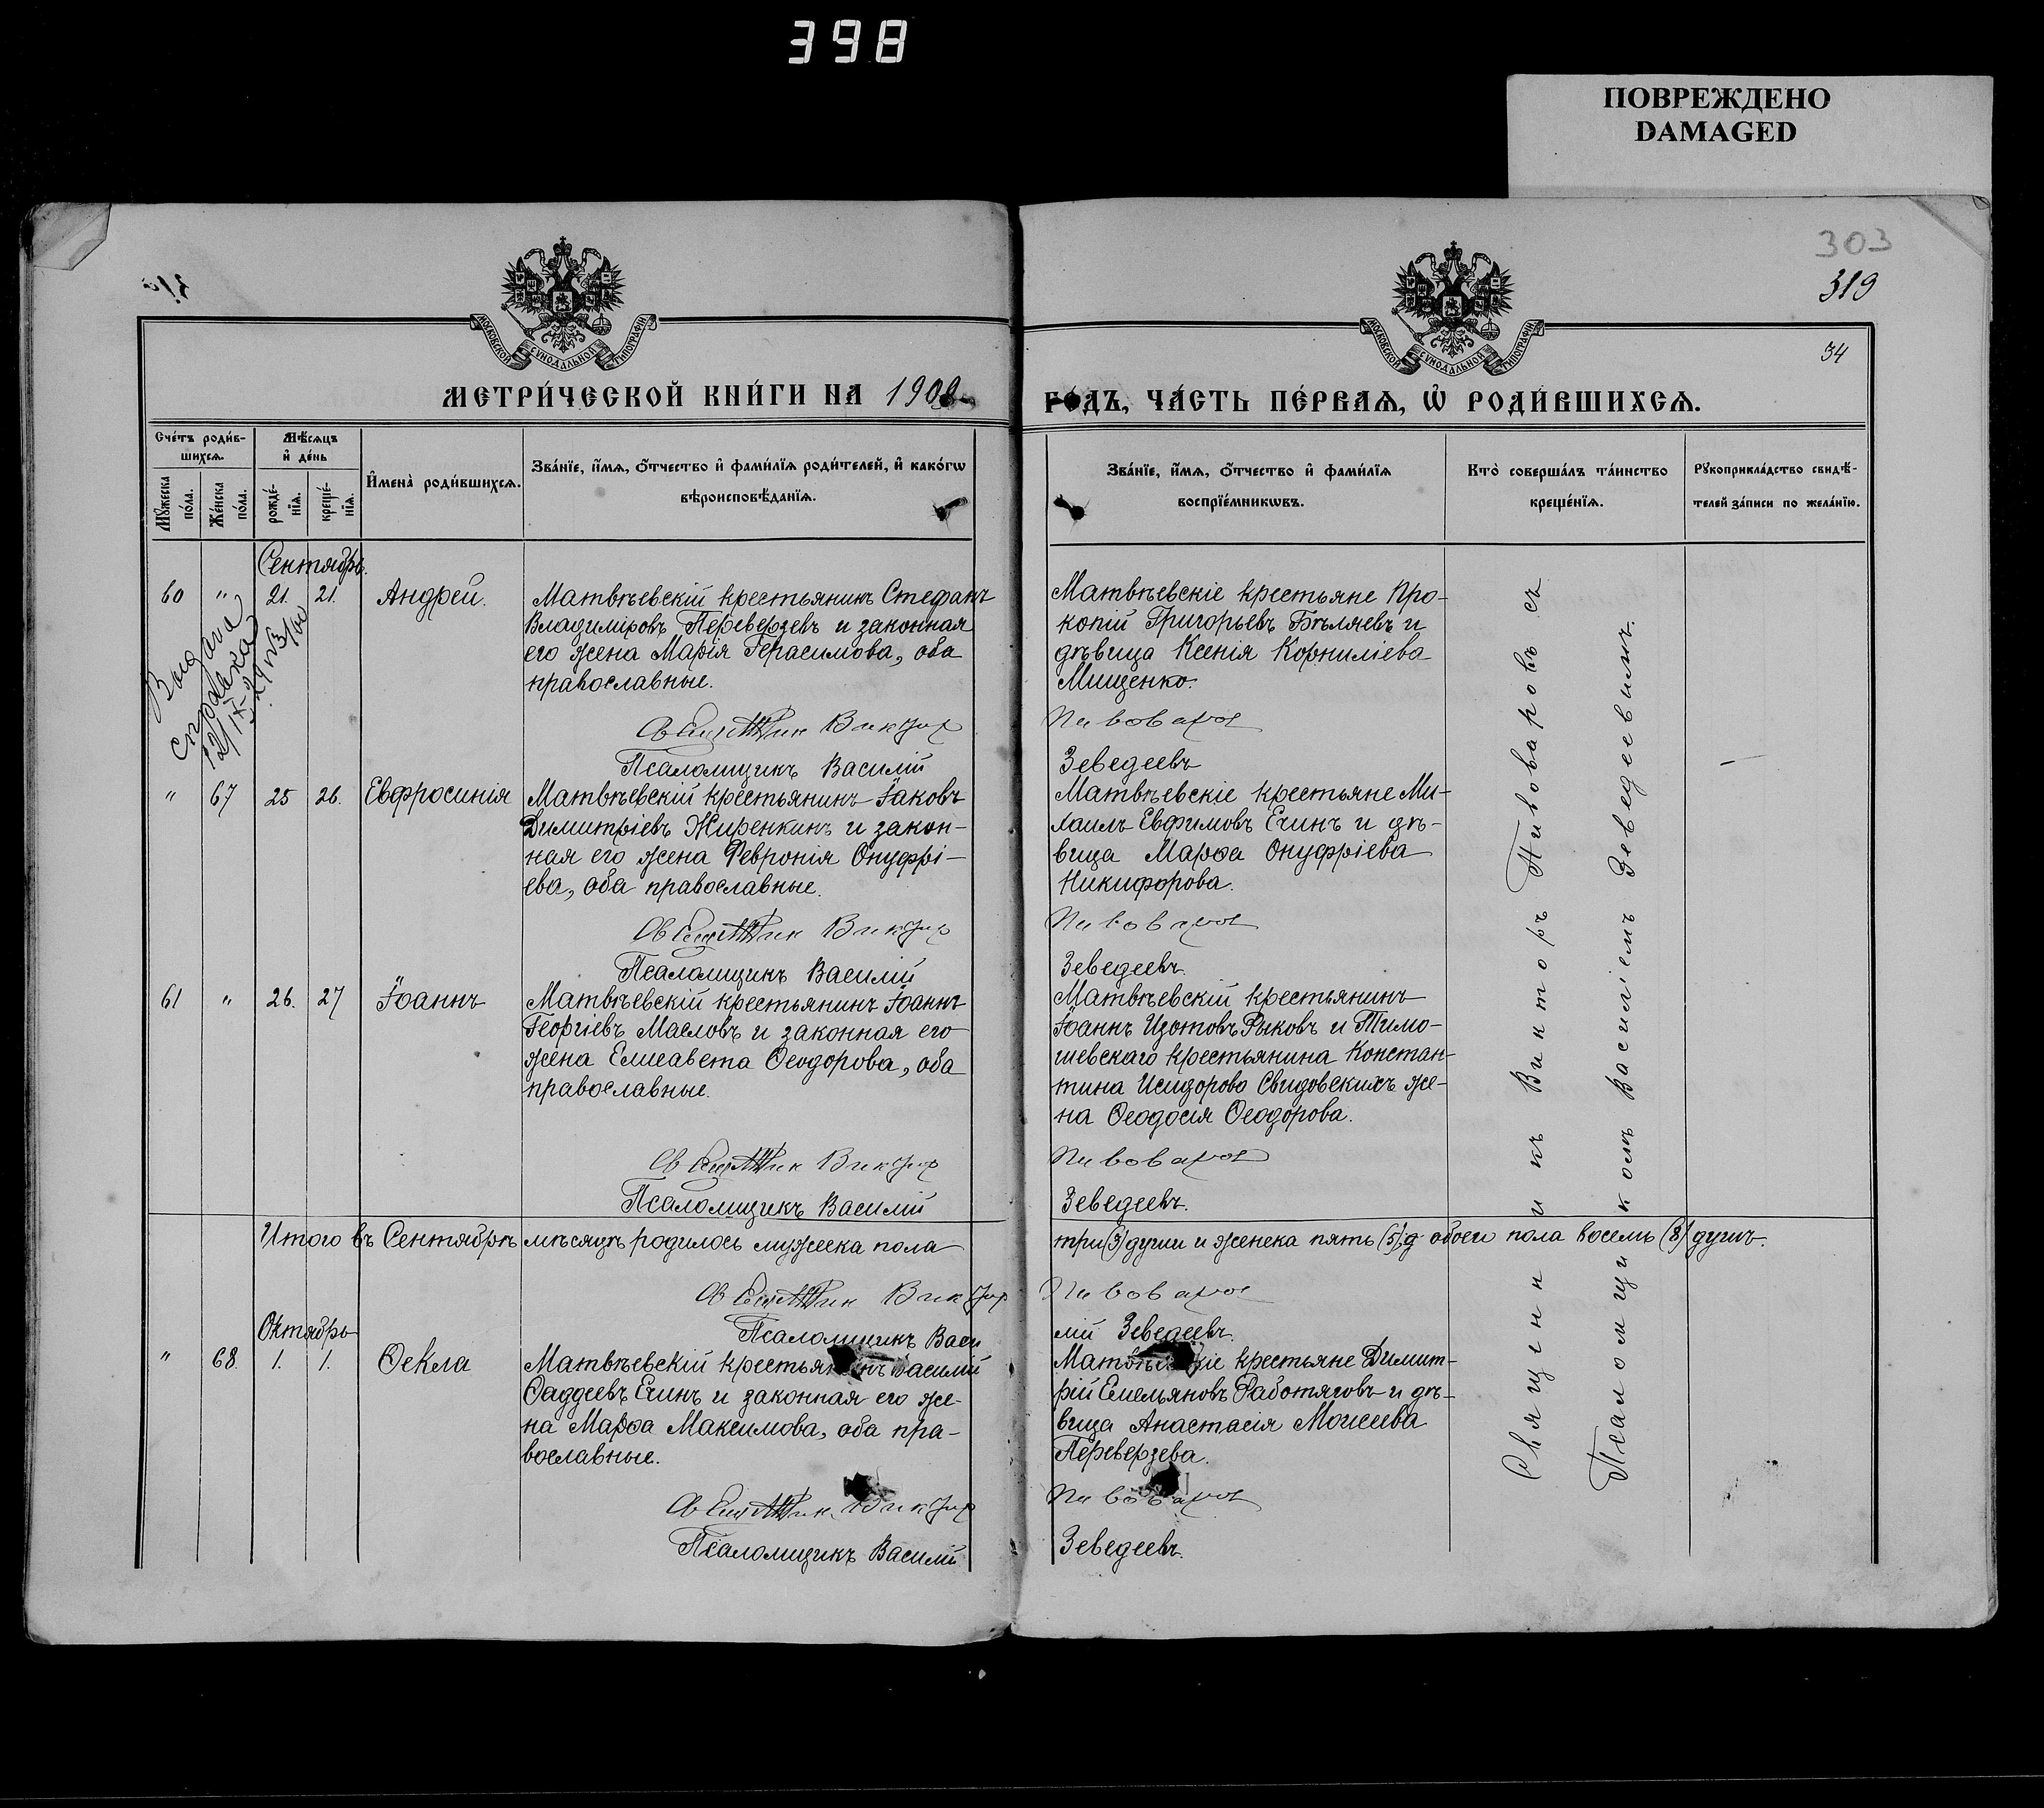 398
ПОВРЕЖДЕНО
DAMAGED
303
319
34
МОСКОВСКОЙ СѴНОДАЛЬНОЙ ТИПОГРАФІИ
МОСКОВСКОЙ СѴНОДАЛЬНОЙ ТИПОГРАФІИ
МЕТРИ́ЧЕСКОЙ КНИ́ГИ НА 190
ГО́ДЪ, ЧА́СТЬ ПЕ́РВАѦ, Ѡ҆ РОДИ́ВШИХСѦ.
Сче́тъ роди́в-
шихсѧ.
Мꙋжеска по́ла.
Же́нска по́ла.
Мѣ́сѧцъ
и҆ де́нь
рожде́-
нїѧ.
креще́-
нїѧ.
И҆мена̀ роди́вшихсѧ.
Зва́нїе, и҆́мѧ, ѻ҆́тчество и҆ фами́лїѧ роди́телей, и҆ како́гѡ
вѣроисповѣ́данїѧ.
Зва́нїе, и҆́мѧ, ѻ҆́тчество и҆ фами́лїѧ
воспрїе́мникѡвъ.
Кто̀ соверша́лъ та́инство
креще́нїѧ.
Рꙋкоприкла́дство свидѣ́-
телей за́писи по жела́нїю.
Сентябрь.
60 " 21. 21. Андрей.
Выдана
справка
Матвѣевскій крестьянинъ Стефанъ
Владиміровъ Переверзевъ и законная
его жена Марія Герасимова, оба
православные.
Священник Виктор
Псаломщикъ Василій
Матвѣевскіе крестьяне Про-
копій Григорьевъ Бѣляевъ и
дѣвица Ксенія Корниліева
Мищенко.
Пивоваров
Зеведеевъ
" 67 25 26. Евфросинія
Матвѣевскій крестьянинъ Іаковъ
Димитріевъ Жиренкинъ и закон-
ная его жена Февронія Онуфрі-
ева, оба православные.
Священник Виктор
Псаломщикъ Василій
Матвѣевскіе крестьяне Ми-
хаилъ Евфимовъ Ечинъ и дѣ-
вица Марѳа Онуфріева
Никифорова.
Пивоваров
Зеведеевъ.
61 " 26. 27 Іоаннъ
Матвѣевскій крестьянинъ Іоаннъ
Георгіевъ Масловъ и законная его
жена Елисавета Ѳеодорова, оба
православные.
Священник Виктор
Псаломщикъ Василій
Матвѣевскій крестьянинъ
Іоаннъ Изотовъ Рыковъ и Тимо-
шевскаго крестьянина Констан-
тина Исидорова Свидовскихъ же-
на Ѳеодосія Ѳеодорова.
Пивоваров
Зеведеевъ.
Итого въ Сентябрѣ мѣсяцѣ родилось мужеска пола
три (3) души и женска пять (5), обоего пола восемь (8) душъ.
Священник Виктор
Псаломщикъ Васи
Пивоваров
лій Зеведеевъ.
Октябрь
" 68. 1. 1. Ѳекла
Матвѣевскій крестьянинъ Василій
Ѳаддеевъ Ечинъ и законная его же-
на Марѳа Максимова, оба пра-
вославные.
Священник Виктор
Псаломщикъ Василій
Матвѣевскіе крестьяне Димит-
рій Емельяновъ Работяговъ и дѣ-
вица Анастасія Моисеева
Переверзева.
Пивоваров
Зеведеевъ.
Священникъ Викторъ Пивоваровъ съ
Псаломщикомъ Василіемъ Зеведеевымъ.